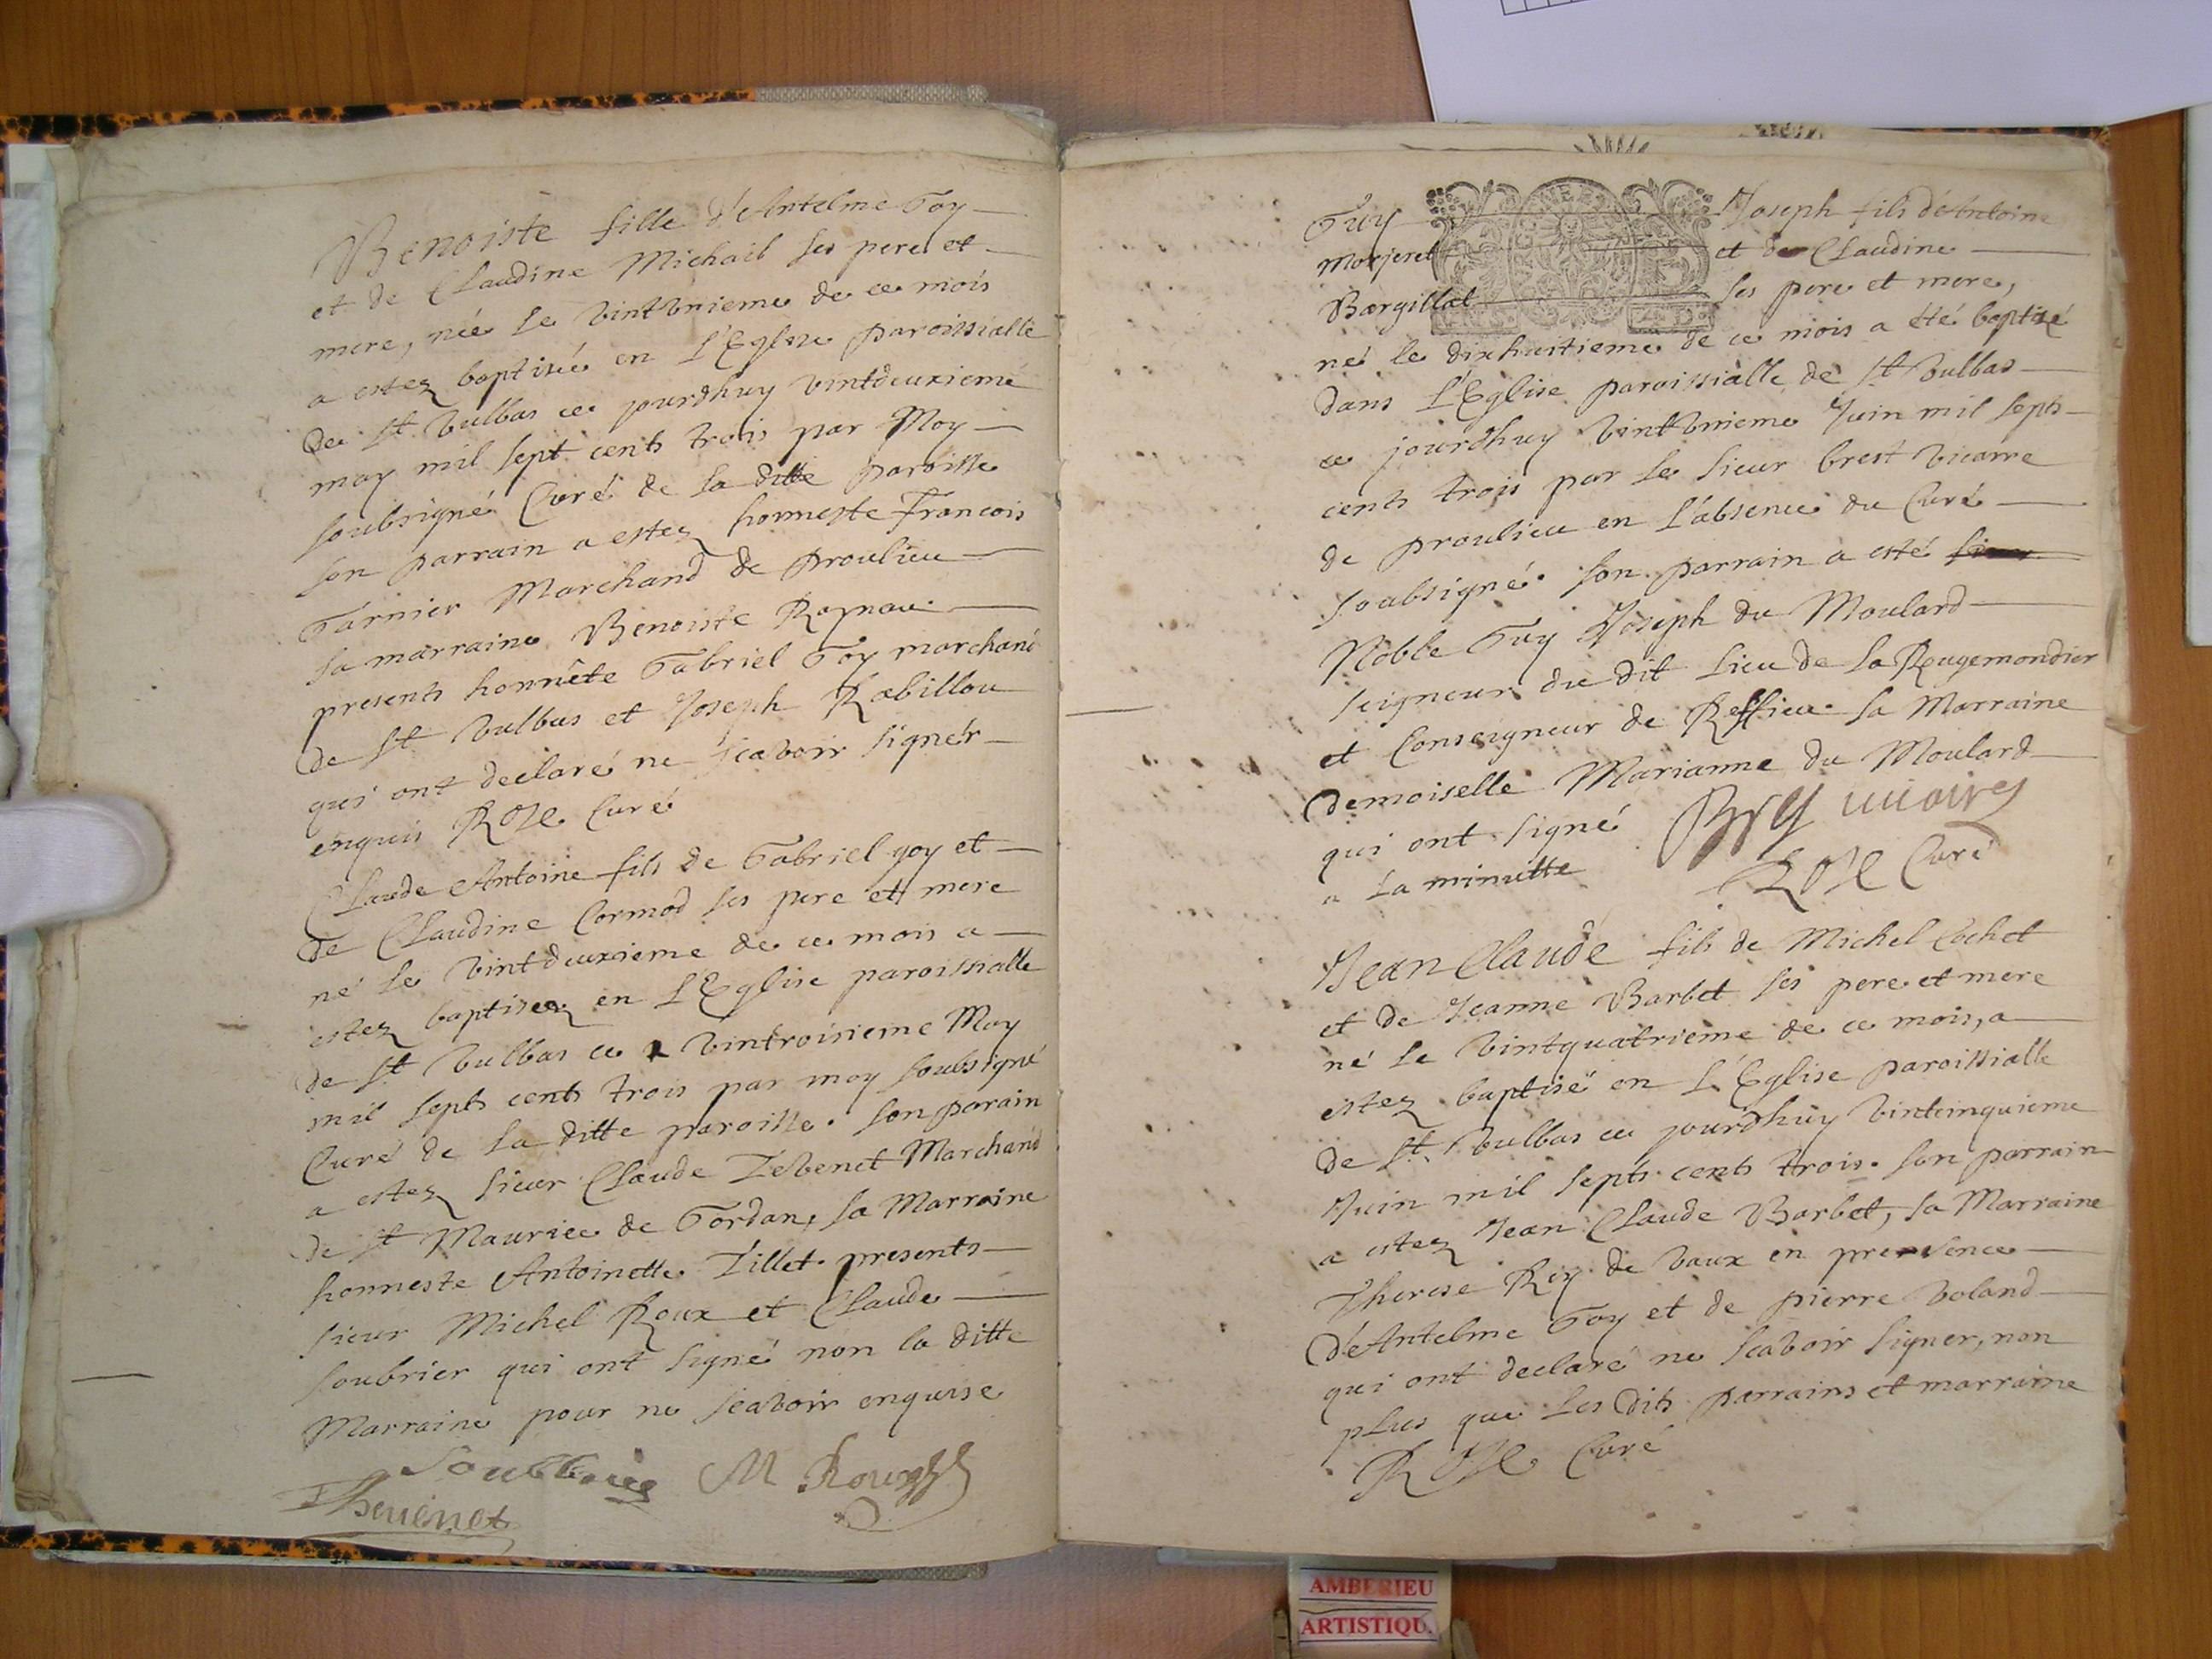 Benoiste fille d'Antelme Goy
et de Claudine Michail ses pere et
mere, née le vintunieme de ce mois
a estez baptisée en L'Eglise paroissialle
de St Vulbas ce jourdhuy vintdeuxieme
may mil sept cents trois par Moy
soubsigné Curé de la ditte paroisse
son parrain a estez honneste Francois
Garnier Marchand de proulieu
sa marraine Benoiste Raynau
presents honnête Gabriel Goy marchand
de St Vulbas et Joseph Rabillou
qui ont declaré ne scavoir signer
enquis Roze Curé
Claude Antoine fils de Gabriel goy et
de Claudine Cormod ses pere et mere
né le vintdeuxieme de ce mois a
estez baptisez en L'Eglise paroissialle
de St Vulbas ce vintroisieme May
mil septs cents trois par moy soubsigné
Curé de la ditte paroisse. son parain
a estez sieur Claude Tevenet Marchand
de St Maurice de Gordan, sa Marraine
honneste Antoinette Tillet. presents
sieur Michel Roux et Claude
soubrier qui ont signé non la ditte
Marraine pour ne scavoir enquise
Soubbrier M Roux
Thevenet
Guy Joseph fils d'Antoine
Morjeret et de Claudine
Bargillat ses pere et mere,
né le dixhuitieme de ce mois a été baptizé
dans L'Eglise paroissialle de St Vulbas
ce jourdhuy vintunieme Juin mil septs
cents trois par le sieur brest vicaire
de proulieu en L'absence du Curé
soubsigné. son parrain a esté
Noble Guy Joseph du Moulard
seigneur du dit Lieu de la Rougemondier
et Conseigneur de Reffieu. sa Marraine
Demoiselle Marianne du Moulard
qui ont signé
a la minutte
vicaire
Roze Curé
Jean Claude fils de Michel Cochet
et de Jeanne Barbet ses pere et mere
né le vintquatrieme de ce mois, a
estez baptisé en L'Eglise paroissialle
de St Vulbas ce jourdhuy vintcinquieme
Juin mil septs cents trois. son parrain
a estez Jean Claude Barbet, sa Marraine
Therese Rey de vaux en presence
d'Antelme Goy et de pierre Voland
qui ont declaré ne scavoir signer, non
plus que les dits parrains et marraine
Roze Curé
AMBERIEU
ARTISTIQU.